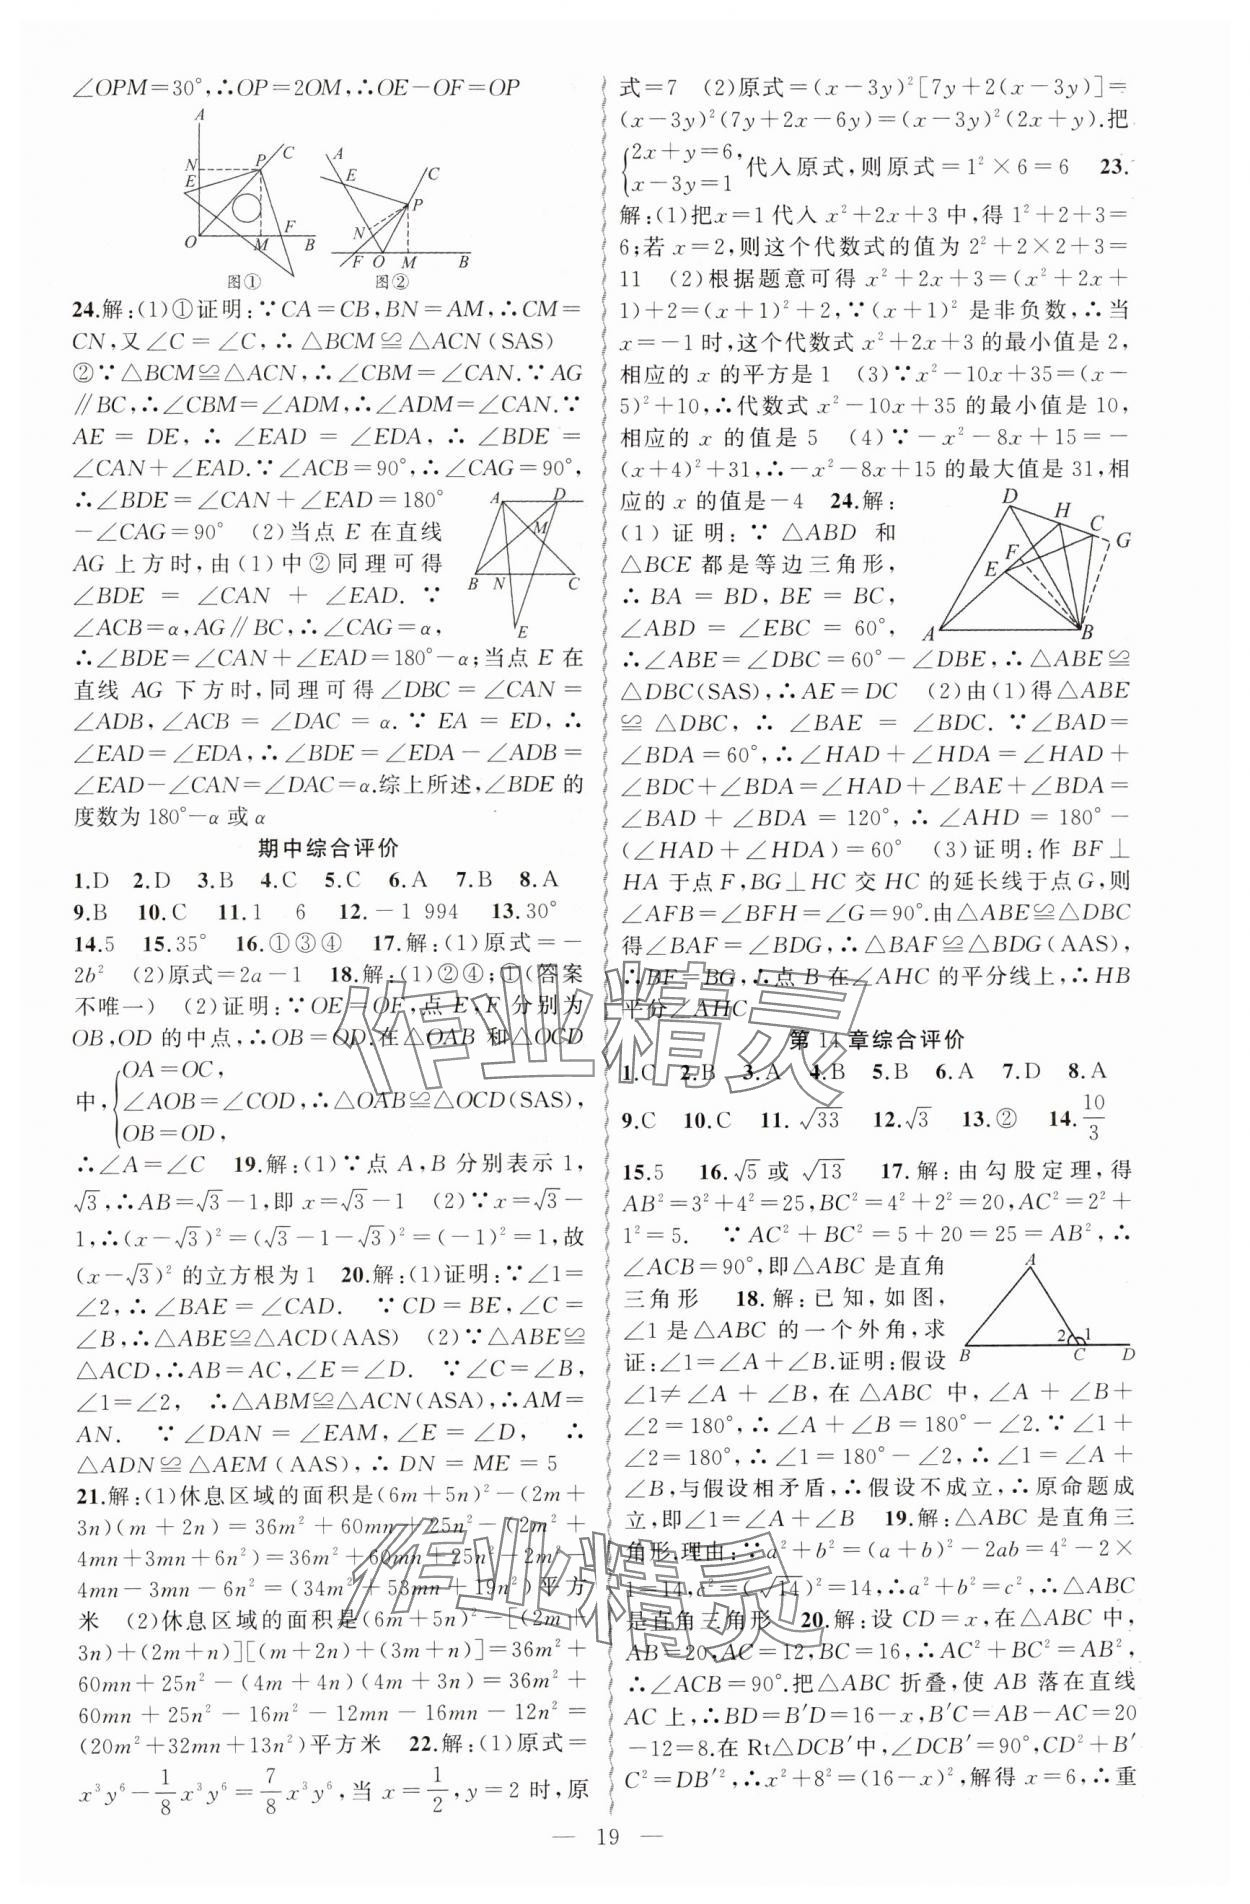 ∠OPM=30°,∴OP=2OM,∴OE-OF=OP
A
N
P
C
E
O
M
F
B
图①
A
E
C
P
N
F
O
M
B
图②
24.解:(1)①证明:∵CA=CB,BN=AM,∴CM=
CN,又∠C=∠C,∴△BCM≌△ACN(SAS)
②∵△BCM≌△ACN,∴∠CBM=∠CAN.∵AG
∥BC,∴∠CBM=∠ADM,∴∠ADM=∠CAN.∵
AE=DE,∴∠EAD=∠EDA,∴∠BDE=
∠CAN+∠EAD.∵∠ACB=90°,∴∠CAG=90°,
∴∠BDE=∠CAN+∠EAD=180°
-∠CAG=90° (2)当点E在直线
AG上方时,由(1)中②同理可得
∠BDE=∠CAN+∠EAD.∵
∠ACB=α,AG∥BC,∴∠CAG=α,
A
D
M
B
N
C
E
∴∠BDE=∠CAN+∠EAD=180°-α;当点E在
直线AG下方时,同理可得∠DBC=∠CAN=
∠ADB,∠ACB=∠DAC=α.∵EA=ED,∴
∠EAD=∠EDA,∴∠BDE=∠EDA-∠ADB=
∠EAD-∠CAN=∠DAC=α.综上所述,∠BDE的
度数为180°-α或α
期中综合评价
1.D 2.D 3.B 4.C 5.C 6.A 7.B 8.A
9.B 10.C 11.1 6 12.-1 994 13.30°
14.5 15.35° 16.①③④ 17.解:(1)原式=-
2b² (2)原式=2a-1 18.解:(1)②④;①(答案
不唯一) (2)证明:∵OE=OF,点E,F分别为
OB,OD的中点,∴OB=OD.在△OAB和△OCD
中,{OA=OC,
∠AOB=∠COD,∴△OAB≌△OCD(SAS),
OB=OD,
∴∠A=∠C 19.解:(1)∵点A,B分别表示1,
√3,∴AB=√3-1,即x=√3-1 (2)∵x=√3-
1,∴(x-√3)²=(√3-1-√3)²=(-1)²=1,故
(x-√3)²的立方根为1 20.解:(1)证明:∵∠1=
∠2,∴∠BAE=∠CAD. ∵CD=BE,∠C=
∠B,∴△ABE≌△ACD(AAS) (2)∵△ABE≌
△ACD,∴AB=AC,∠E=∠D. ∵∠C=∠B,
∠1=∠2, ∴△ABM≌△ACN(ASA),∴AM=
AN. ∵∠DAN=∠EAM,∠E=∠D, ∴
△ADN≌△AEM(AAS),∴DN=ME=5
21.解:(1)休息区域的面积是(6m+5n)²-(2m+
3n)(m+2n)=36m²+60mn+25n²-(2m²+
4mn+3mn+6n²)=36m²+60mn+25n²-2m²-
4mn-3mn-6n²=(34m²+53mn+19n²)平方
米 (2)休息区域的面积是(6m+5n)²-[(2m+
3n)+(2m+n)][(m+2n)+(3m+n)]=36m²+
60mn+25n²-(4m+4n)(4m+3n)=36m²+
60mn+25n²-16m²-12mn-16mn-12n²=
(20m²+32mn+13n²)平方米 22.解:(1)原式=
x³y⁶-1/8x³y⁶=7/8x³y⁶,当x=1/2,y=2时,原
式=7 (2)原式=(x-3y)²[7y+2(x-3y)]=
(x-3y)²(7y+2x-6y)=(x-3y)²(2x+y).把
{2x+y=6,
x-3y=1代入原式,则原式=1²×6=6 23.
解:(1)把x=1代入x²+2x+3中,得1²+2+3=
6;若x=2,则这个代数式的值为2²+2×2+3=
11 (2)根据题意可得x²+2x+3=(x²+2x+
1)+2=(x+1)²+2,∵(x+1)²是非负数,∴当
x=-1时,这个代数式x²+2x+3的最小值是2,
相应的x的平方是1 (3)∵x²-10x+35=(x-
5)²+10,∴代数式x²-10x+35的最小值是10,
相应的x的值是5 (4)∵-x²-8x+15=-
(x+4)²+31,∴-x²-8x+15的最大值是31,相
应的x的值是-4 24.解:
(1)证明:∵△ABD和
△BCE都是等边三角形,
∴BA=BD,BE=BC,
∠ABD=∠EBC=60°,
D
H
C
G
F
E
A
B
∴∠ABE=∠DBC=60°-∠DBE,∴△ABE≌
△DBC(SAS),∴AE=DC (2)由(1)得△ABE
≌△DBC,∴∠BAE=∠BDC.∵∠BAD=
∠BDA=60°,∴∠HAD+∠HDA=∠HAD+
∠BDC+∠BDA=∠HAD+∠BAE+∠BDA=
∠BAD+∠BDA=120°,∴∠AHD=180°-
(∠HAD+∠HDA)=60° (3)证明:作BF⊥
HA于点F,BG⊥HC交HC的延长线于点G,则
∠AFB=∠BFH=∠G=90°.由△ABE≌△DBC
得∠BAF=∠BDG,∴△BAF≌△BDG(AAS),
∴BF=BG,∴点B在∠AHC的平分线上,∴HB
平分∠AHC
第14章综合评价
1.C 2.B 3.A 4.B 5.B 6.A 7.D 8.A
9.C 10.C 11.√33 12.√3 13.② 14.10/3
15.5 16.√5或√13 17.解:由勾股定理,得
AB²=3²+4²=25,BC²=4²+2²=20,AC²=2²+
1²=5. ∵AC²+BC²=5+20=25=AB²,∴
∠ACB=90°,即△ABC是直角
三角形 18.解:已知,如图,
∠1是△ABC的一个外角,求
证:∠1=∠A+∠B.证明:假设
A
2
1
B
C
D
∠1≠∠A+∠B,在△ABC中,∠A+∠B+
∠2=180°,∴∠A+∠B=180°-∠2.∵∠1+
∠2=180°,∴∠1=180°-∠2,∴∠1=∠A+
∠B,与假设相矛盾,∴假设不成立,∴原命题成
立,即∠1=∠A+∠B 19.解:△ABC是直角三
角形,理由:∵a²+b²=(a+b)²-2ab=4²-2×
1=14,c²=(√14)²=14,∴a²+b²=c²,∴△ABC
是直角三角形 20.解:设CD=x,在△ABC中,
AB=20,AC=12,BC=16,∴AC²+BC²=AB²,
∴∠ACB=90°.把△ABC折叠,使AB落在直线
AC上,∴BD=B′D=16-x,B′C=AB-AC=20
-12=8.在Rt△DCB′中,∠DCB′=90°,CD²+B′
C²=DB′²,∴x²+8²=(16-x)²,解得x=6,∴重
— 19 —
作业精灵
作业精灵